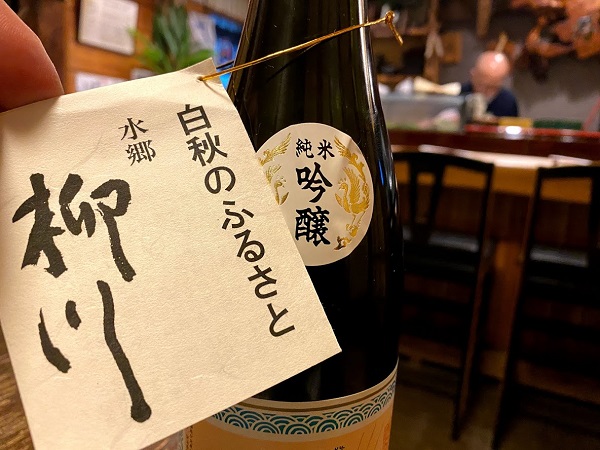 白秋のふるさと
水郷
柳川
純米
吟醸